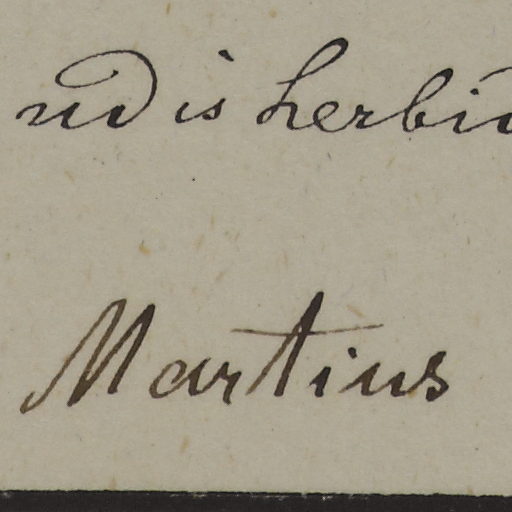 ndis herbid
Martius